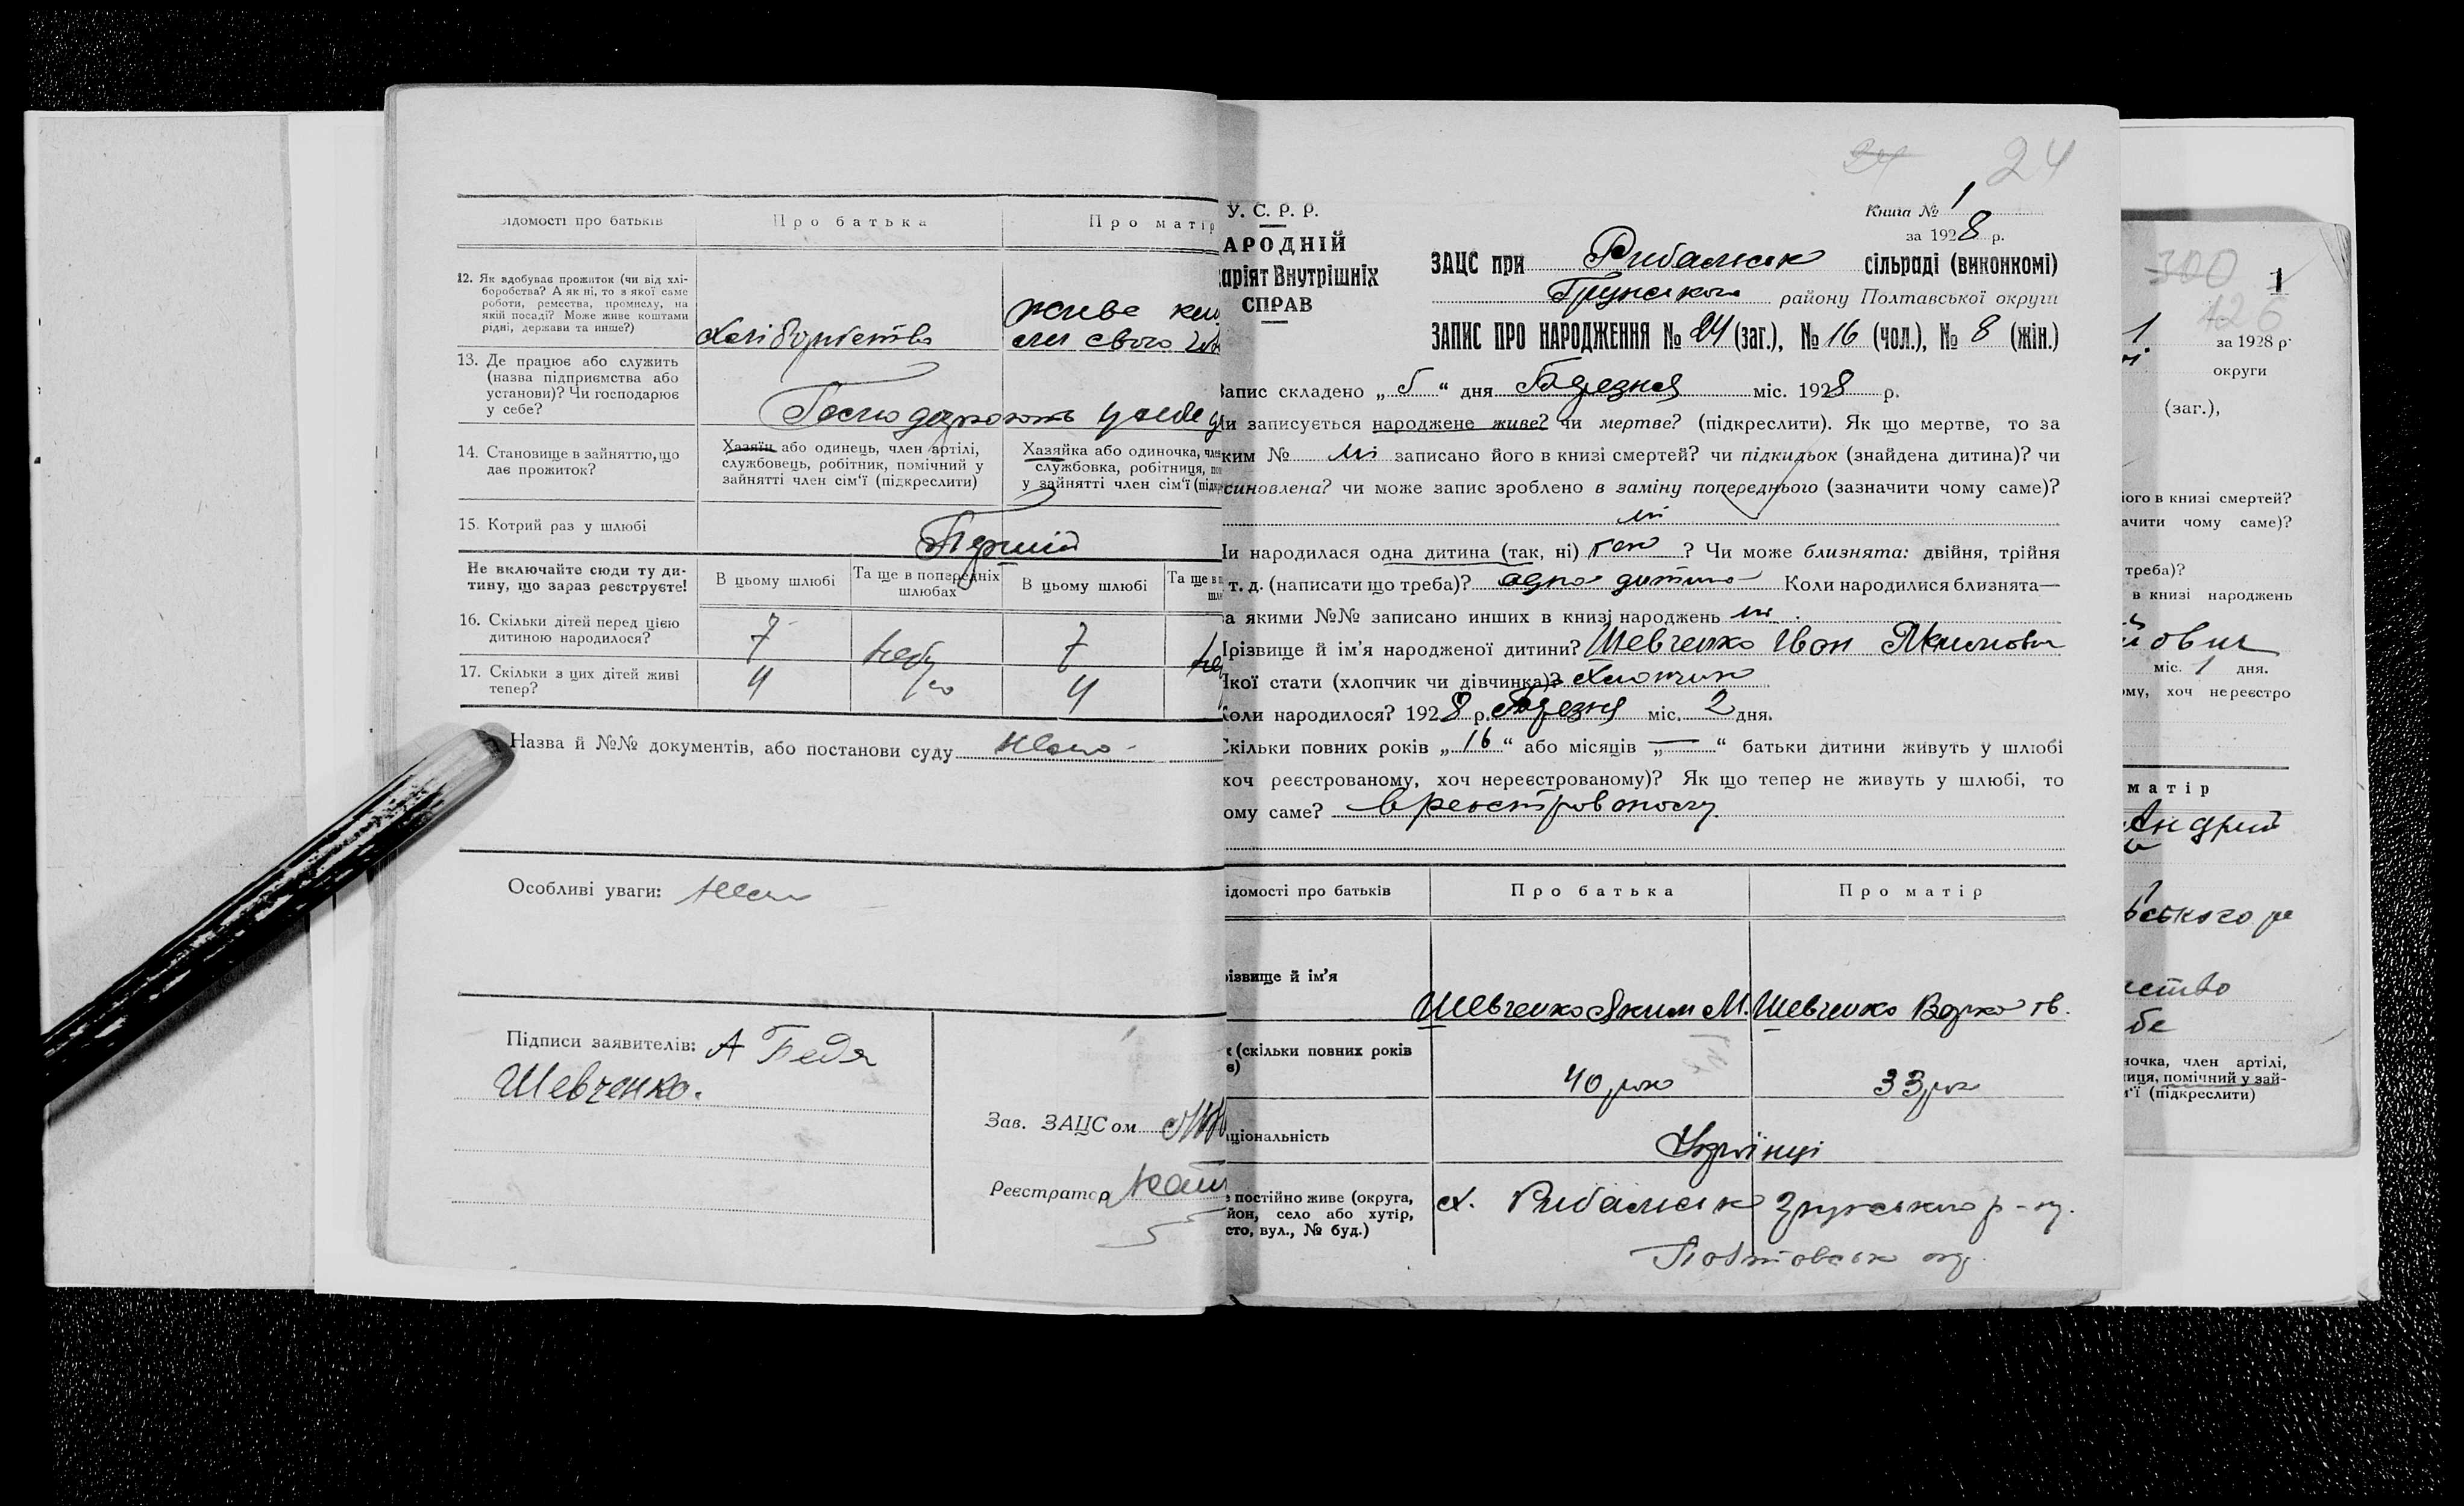 ідомості про батьків
Про батька
Про матір
12. Як здобуває прожиток (чи від хлі-
боробства? А як ні, то з якої саме
роботи, ремества, промислу, на
якій посаді? Може живе коштами
рідні, держави та инше?)
Хліборобство
живе
свого
13. Де працює або служить
(назва підприємства або
установи)? Чи господарює
у себе?
Господарюють у себе
14. Становище в зайняттю, що
дає прожиток?
Хазяїн або одинець, член артілі,
службовець, робітник, помічний у
зайнятті член сім'ї (підкреслити)
Хазяйка або одиночка, член
службовка, робітниця, по
у зайнятті член сім'ї (підкр
15. Котрий раз у шлюбі
Перший
Не включайте сюди ту ди-
тину, що зараз реєструєте!
В цьому шлюбі
Та ще в попередніх
шлюбах
В цьому шлюбі
Та ще в п
шлю
16. Скільки дітей перед цією
дитиною народилося?
7
7
17. Скільки з цих дітей живі
тепер?
4
4
Назва й №№ документів, або постанови суду
Особливі уваги:
Підписи заявителів: А Бедя
Шевченко.
Зав. ЗАЦСом
Реєстратор
24
24
У. С. Р. Р.
АРОДНІЙ
аріят Внутрішніх
СПРАВ
Книга № 1
за 1928 р.
ЗАЦС при Рибальск сільраді (виконкомі)
Грунського району Полтавської округи
ЗАПИС ПРО НАРОДЖЕННЯ № 24 (заг.), № 16 (чол.), № 8 (жін.)
Запис складено „ 5 “ дня Березня міс. 1928 р.
Чи записується народжене живе? чи мертве? (підкреслити). Як що мертве, то за
ким № ні записано його в книзі смертей? чи підкидьок (знайдена дитина)? чи
синовлена? чи може запис зроблено в заміну попереднього (зазначити чому саме)?
ні
Чи народилася одна дитина (так, ні) так ? Чи може близнята: двійня, трійня
т. д. (написати що треба)? одна дитина Коли народилися близнята—
за якими №№ записано инших в книзі народжень ні .
Прізвище й ім'я народженої дитини? Шевченко Іван Якимович
Якої стати (хлопчик чи дівчинка)? Хлопчик
Коли народилося? 1928 р. Березня міс. 2 дня.
Скільки повних років „ 16 “ або місяців „ — “ батьки дитини живуть у шлюбі
хоч реєстрованому, хоч нереєстрованому)? Як що тепер не живуть у шлюбі, то
ому саме? в реєстрованому
ідомості про батьків
Про батька
Про матір
різвище й ім'я
Шевченко Яким М.
Шевченко Варка Ів.
(скільки повних років
в)
40 рок
33 рок
аціональність
Українці
е постійно живе (округа,
йон, село або хутір,
сто, вул., № буд.)
х. Рибальськ Грунського р-ну.
Полтовськ окр.
300
1
126
1
за 1928 р.
округи
(заг.),
ого в книзі смертей?
ачити чому саме)?
треба)?
в книзі народжень
йович
міс. 1 дня.
ому, хоч нереєстро
матір
Андрій
ського ра
ство
бе
ночка, член артілі,
ниця, помічний у зай-
м'ї (підкреслити)